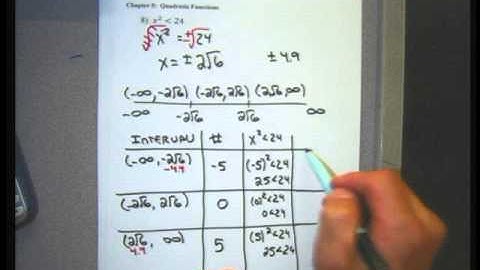 Chapter 8: Quadratic Functions
8) x² < 24
√x² = ±√24
x = ± 2√6 ± 4.9
(-∞, -2√6) (-2√6, 2√6) (2√6, ∞)
-∞ -2√6 2√6 ∞
INTERVAL # x² < 24
(-∞, -2√6) -5 (-5)² < 24
-4.9 25 < 24
(-2√6, 2√6) 0 (0)² < 24
0 < 24
(2√6, ∞) 5 (5)² < 24
4.9 25 < 24